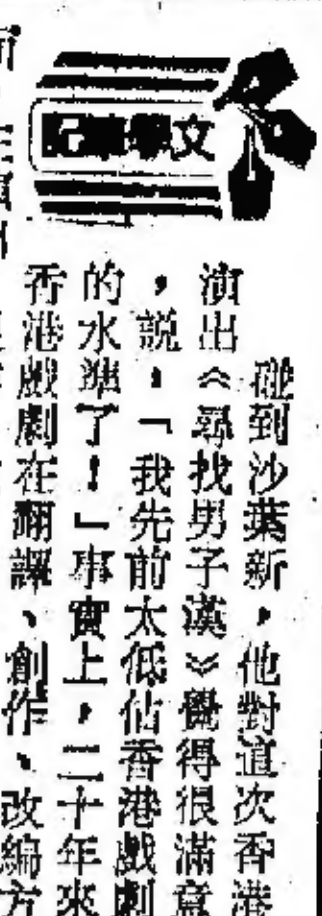 文學筆記
碰到沙葉新，他對這次香港
演出《尋找男子漢》覺得很滿意
，說：「我先前太低估香港戲劇
的水準了！」事實上，二十年來
香港戲劇在翻譯、創作、改編方